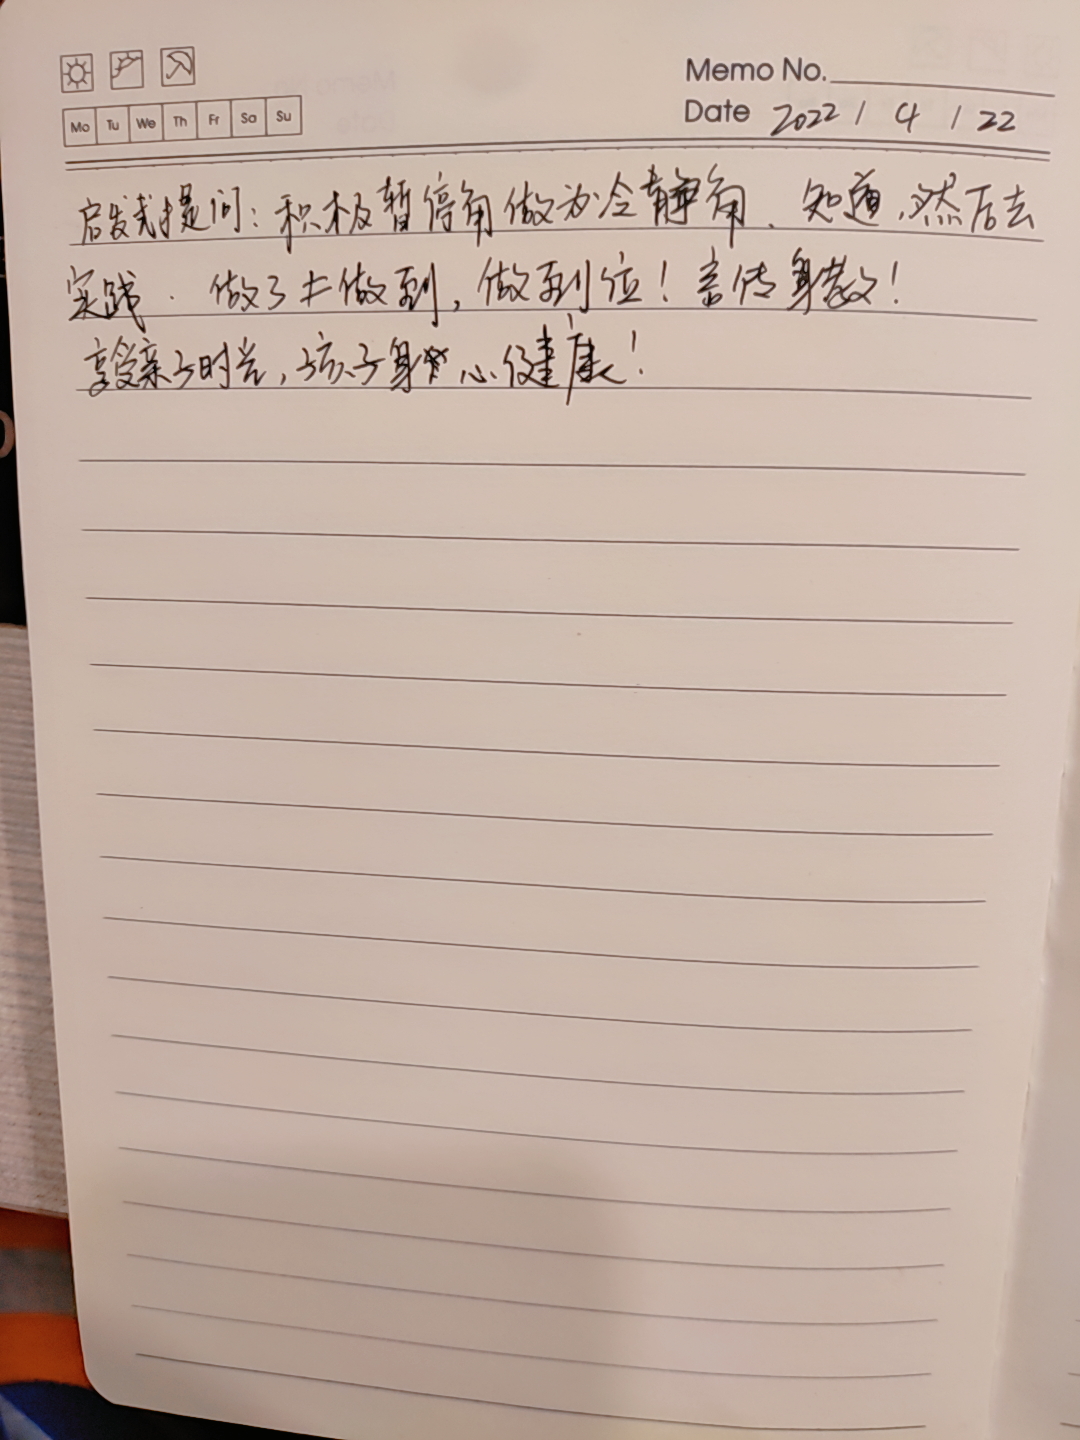 Memo No.
Mo Tu We Th Fr Sa Su
Date 2022 / 4 / 22
启发式提问：积极暂停角做为冷静角、知道，然后去
实践. 做了≠做到，做到位！言传身教！
享受亲子时光，孩子身心健康！